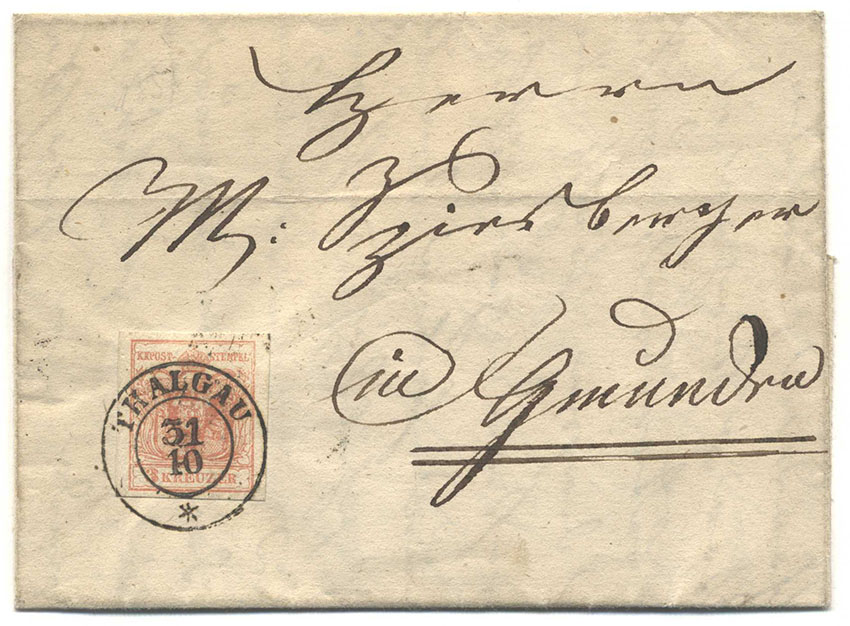 Herrn
M: Ziesberger
in Gmunden
KKPOST-STEMPEL
THALGAU
31
10
*
3 KREUZER